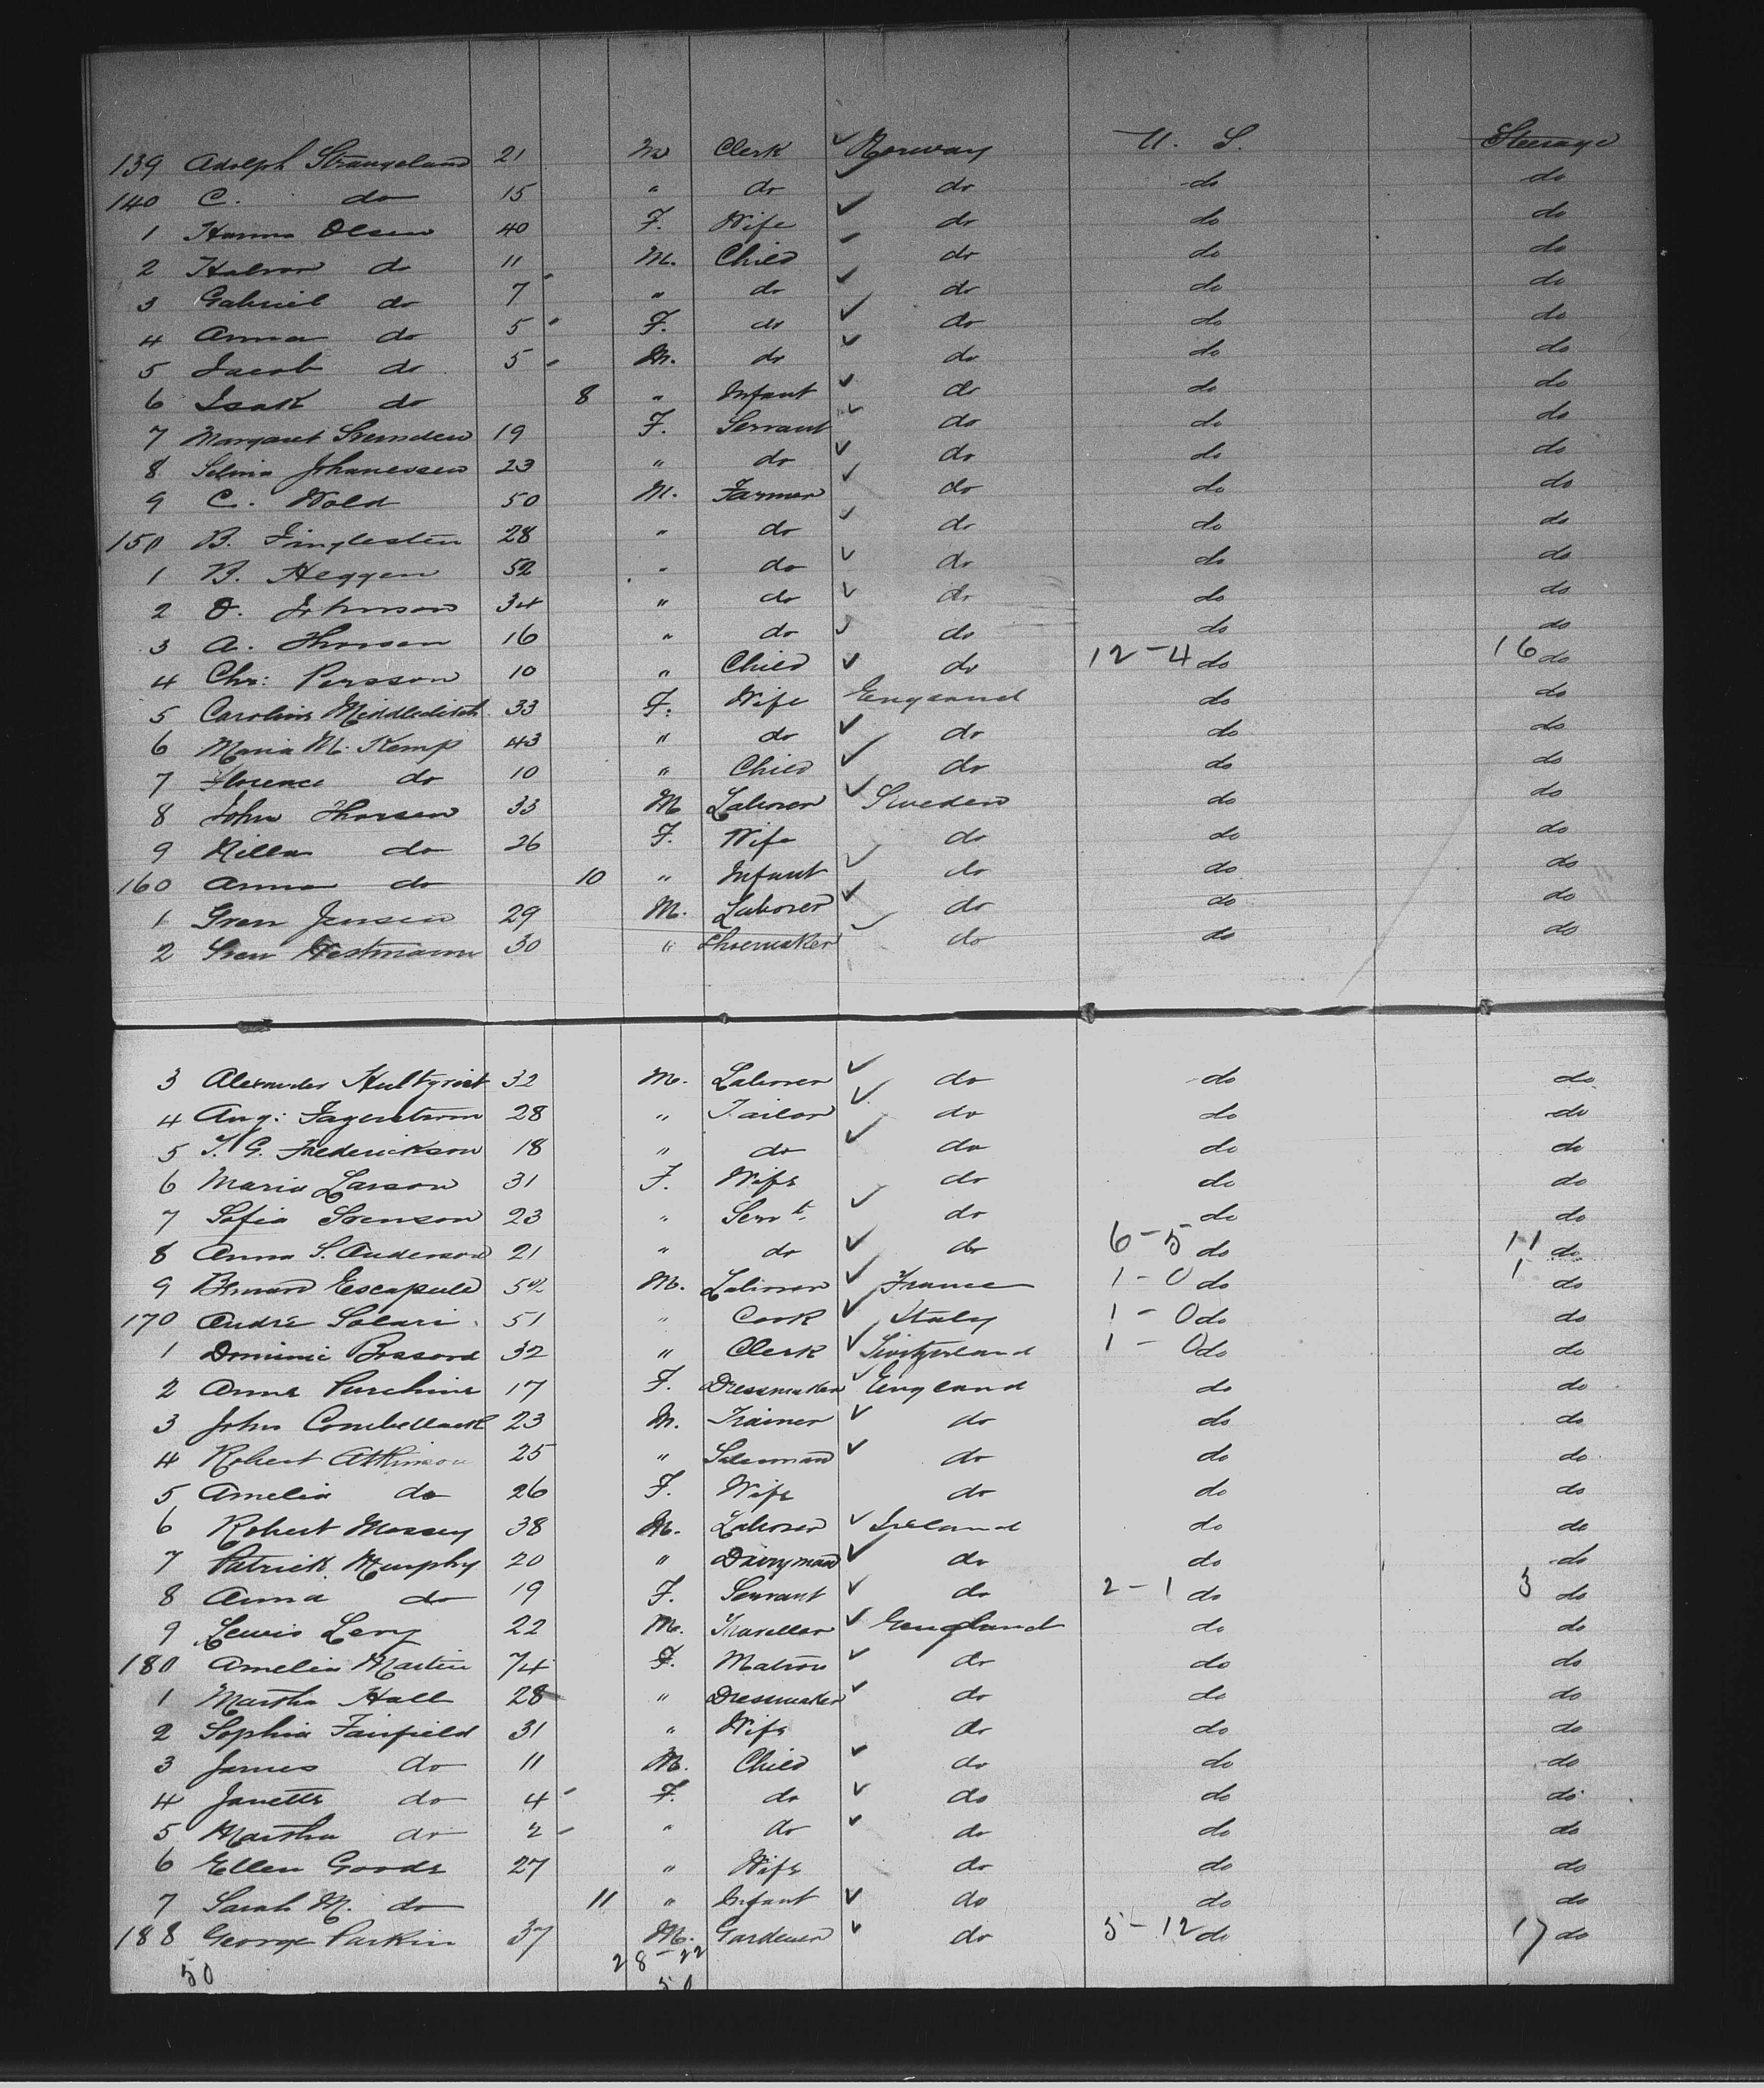 139 Adolph Strangeland 21 M Clerk ✓ Norway U. S. Steerage
140 C. do 15 " do ✓ do do do
1 Hanna Olsen 40 F. Wife ✓ do do do
2 Halvor do 11 M. Child do do do
3 Gabriel do 7 " do ✓ do do do
4 Anna do 5 F. do ✓ do do do
5 Jacob do 5 M. do ✓ do do do
6 Isak do 8 " Infant ✓ do do do
7 Margaret Svendsen 19 F. Servant ✓ do do do
8 Selma Johanessen 23 " do ✓ do do do
9 C. Wold 50 M. Farmer ✓ do do do
150 B. 28 " do ✓ do do do
1 B. Heggen 52 " do ✓ do do do
2 O. Johnson 34 " do ✓ do do do
3 A. Thorsen 16 " do ✓ do do do
4 Chr: Persson 10 " Child ✓ do 12-4 do 16 do
5 Caroline Middleditch 33 F. Wife England do do
6 Maria M. Kemp 43 " do ✓ do do do
7 Florence do 10 " Child ✓ do do do
8 John Thorsen 33 M Laborer ✓ Sweden do do
9 Milla do 26 F. Wife do do do
160 Anna do 10 " Infant ✓ do do do
1 Sven Jensen 29 M. Laborer ✓ do do do
2 Sven Westmann 30 " Shoemaker ✓ do do do
3 Alexander Hultqvist 32 M. Laborer ✓ do do do
4 Aug: Fagerstrom 28 " Tailor ✓ do do do
5 T. G. Frederickson 18 " do ✓ do do do
6 Maria Larson 31 F. Wife do do do
7 Sofia Svenson 23 " Servt. ✓ do do do
8 Anna S. Anderson 21 " do ✓ do 6-5 do 11 do
9 Bernard Escapule M. Laborer ✓ France 1-0 do 1 do
170 André Solari 51 " Cook ✓ Italy 1-0 do do
1 Dominic 32 " Clerk ✓ Switzerland 1-0 do do
2 Anna 17 F. Dressmaker ✓ England do do
3 John Combellack 23 M. ✓ do do do
4 Robert Atkinson 25 " Salesman ✓ do do do
5 Amelia do 26 F. Wife do do do
6 Robert Massey 38 M. Laborer ✓ Ireland do do
7 Patrick Murphy 20 " Dairyman ✓ do do do
8 Anna do 19 F. Servant ✓ do 2-1 do 3 do
9 Lewis Levy 22 M. Traveller ✓ England do do
180 Amelia Martin 74 F. Matron ✓ do do do
1 Martha Hall 28 " Dressmaker ✓ do do do
2 Sophia Fairfield 31 " Wife do do do
3 James do 11 M. Child ✓ do do do
4 Janette do 4 F. do ✓ do do do
5 Martha do 2 " do ✓ do do do
6 Ellen Goode 27 " Wife do do do
7 Sarah M. do 11 " Infant ✓ do do do
188 George Parkin 37 M. Gardener ✓ do 5-12 do 17 do
50 28-22
50